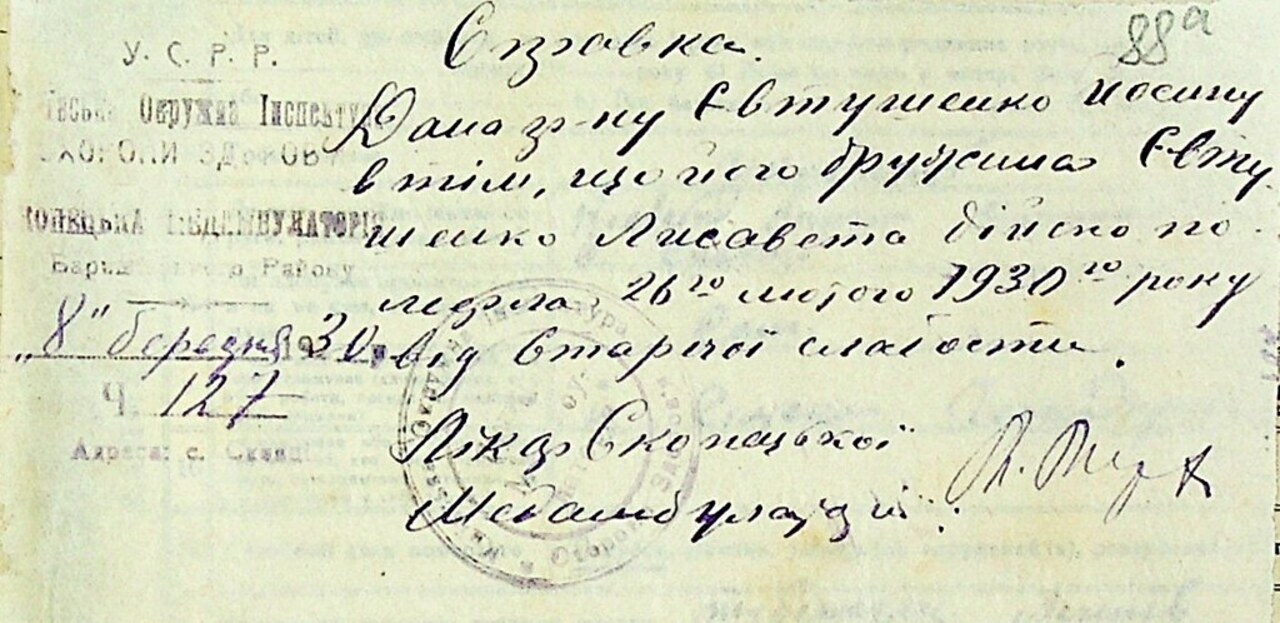 88а
Справка.
У. С. Р. Р.
Окружна Інспектура
ОХОРОНИ ЗДОРОВ
МЕДАМБУЛАТОРІЯ
Району
„8" березня 1930 р.
Ч. 127
Адреса: с.
Дана гр-ну Євтушенко Йосипу
в тім, що його дружина Євту-
шенко Лисавета дійсно по-
мерла 26го лютого 1930го року
від старечої слабости.
Лікар Скопецької
Медамбулаторії: